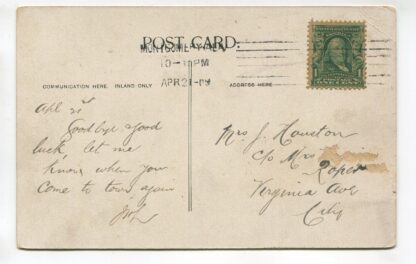 POST CARD.
MONTGOMERY, ALA.
10-PM
APR 21-09
COMMUNICATION HERE. INLAND ONLY
ADDRESS HERE
1 1
ONE CENT
Apl 21st
Goodbye & good
luck let me
know when you
come to town again
Mrs J. Houston
c/o Mrs
Roper
Virginia Ave
City